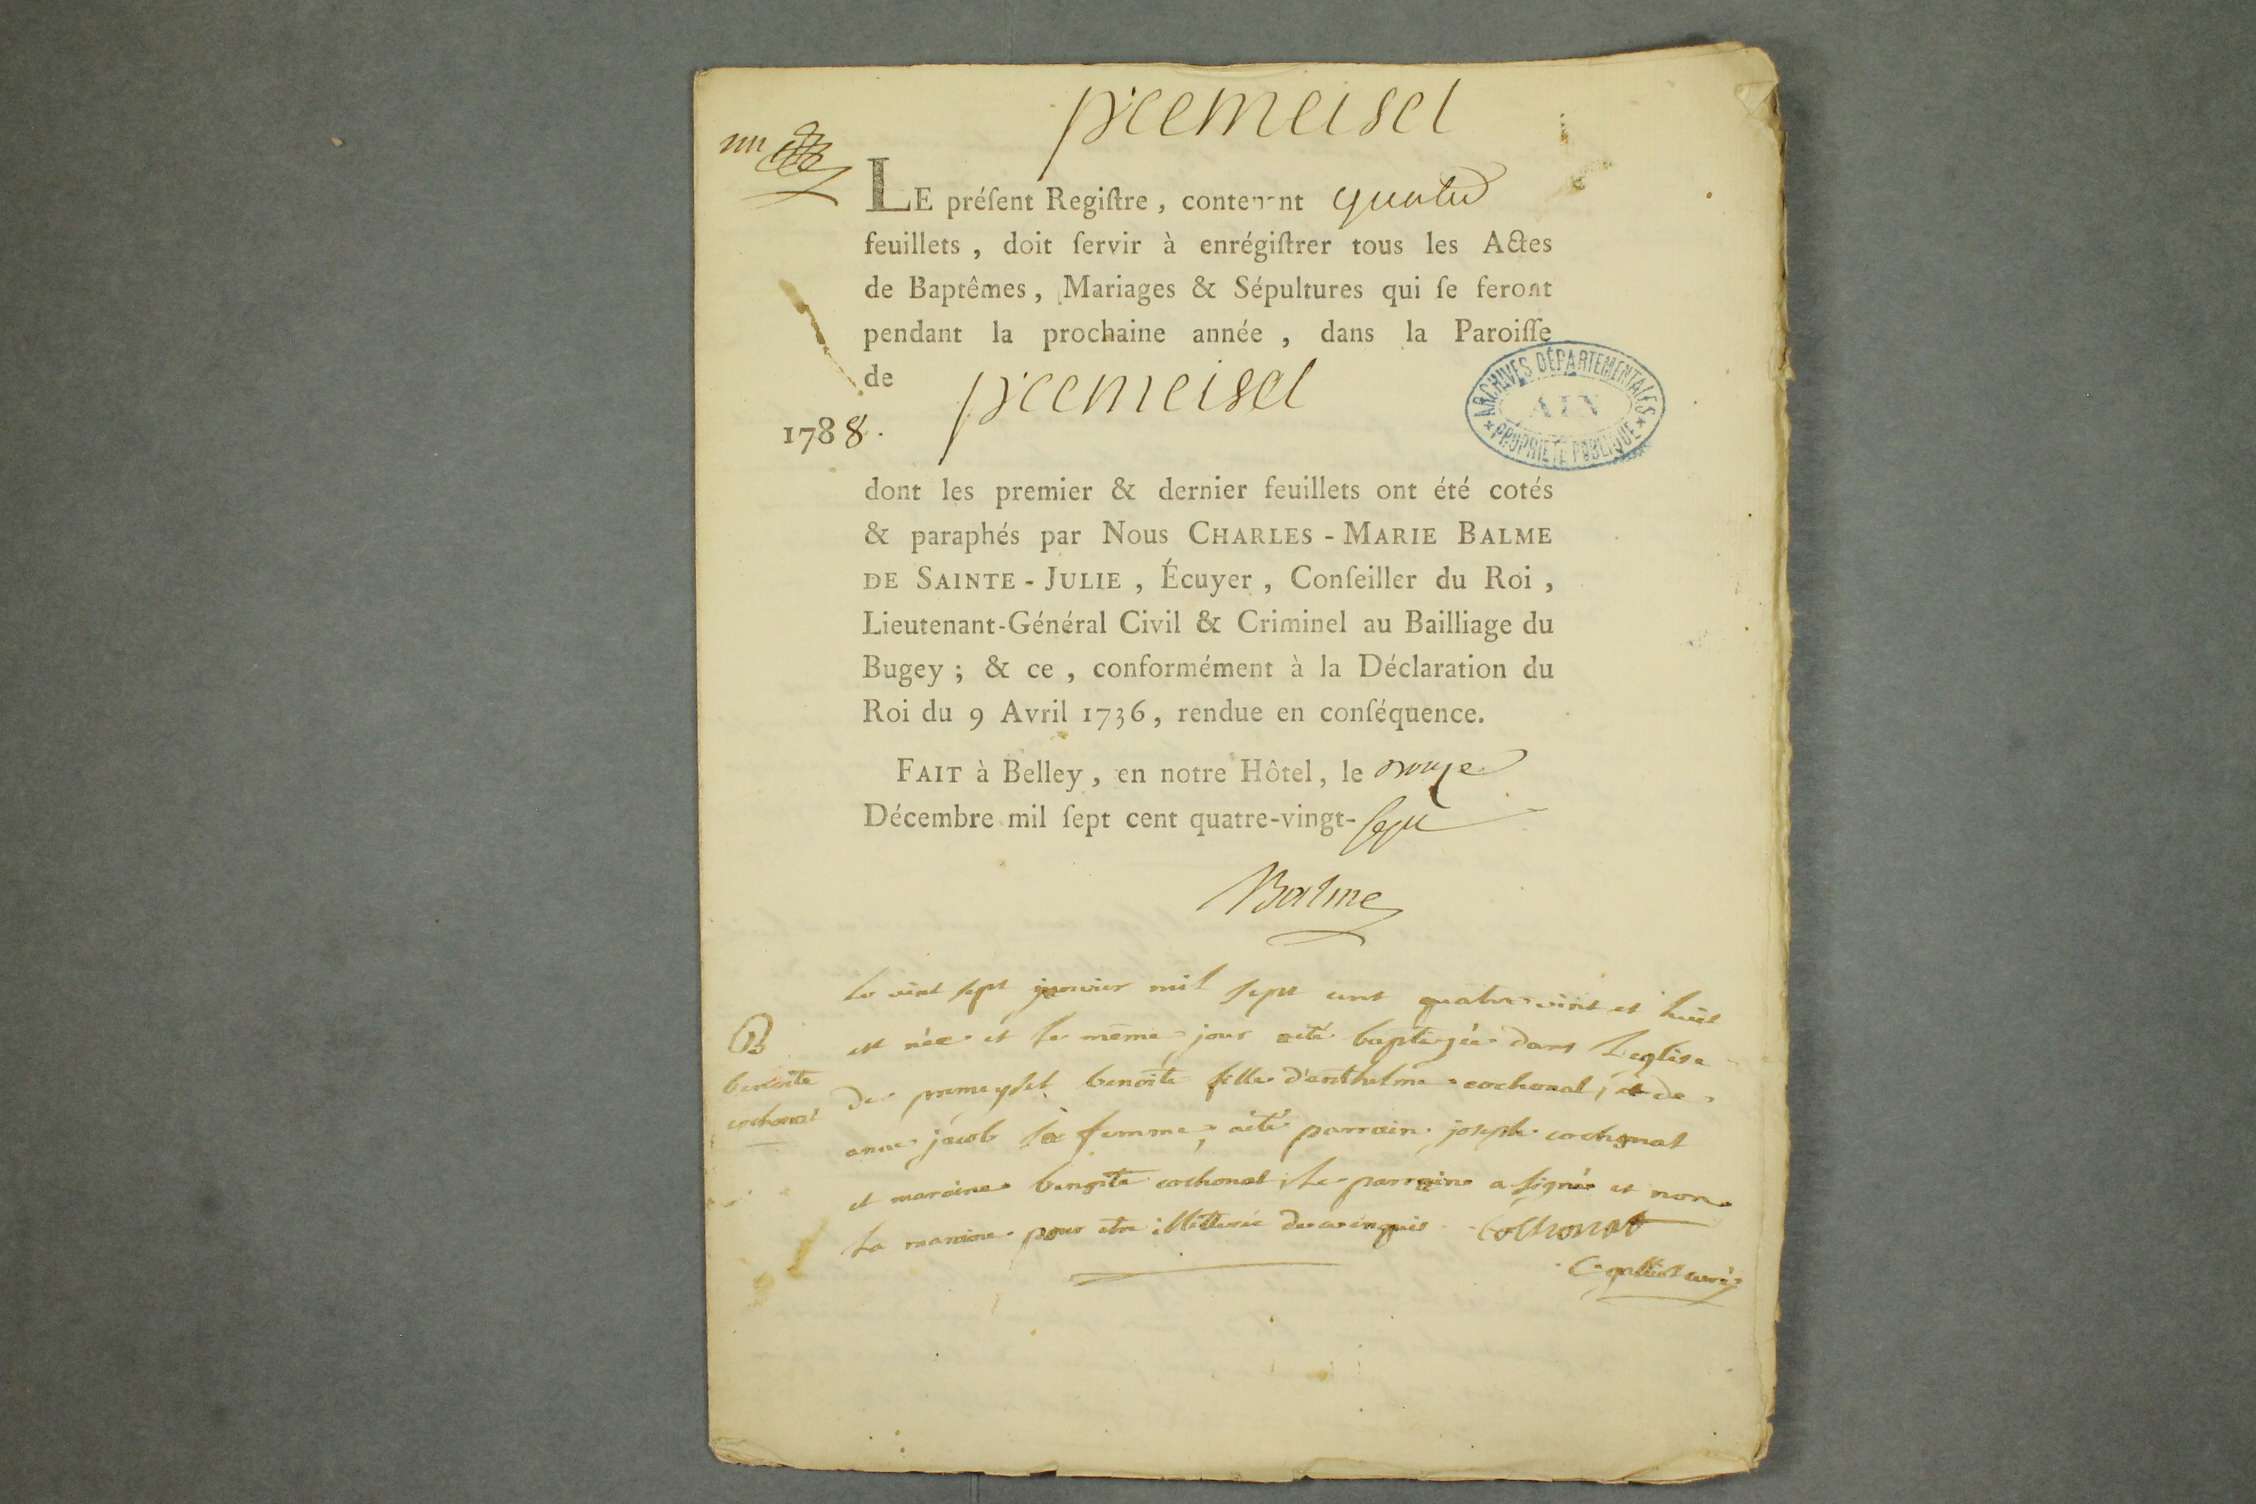 premeisel
un
LE préſent Regiſtre, contenant quatre
feuillets, doit ſervir à enrégiſtrer tous les Actes
de Baptêmes, Mariages & Sépultures qui ſe feront
pendant la prochaine année, dans la Paroiſſe
de premeisel
1788.
ARCHIVES DÉPARTEMENTALES
AIN
* PROPRIÉTÉ PUBLIQUE *
dont les premier & dernier feuillets ont été cotés
& paraphés par Nous CHARLES-MARIE BALME
DE SAINTE-JULIE, Écuyer, Conſeiller du Roi,
Lieutenant-Général Civil & Criminel au Bailliage du
Bugey; & ce, conformément à la Déclaration du
Roi du 9 Avril 1736, rendue en conſéquence.
FAIT à Belley, en notre Hôtel, le onze
Décembre mil ſept cent quatre-vingt-sept
Balme
B
benoite
cochonat
Le vint sept janvier mil sept cent quatre vint et huit
est née et le même jour aeté baptizée dans L'eglise
de premeysel benoite fille d'anthelme cochonat, et de
anne jacob sa femme, aété parrain joseph cochonat
et maraine benoite cochonat, Le parrain a signé et non
La marrine pour etre illetterée de ce enquis cochonat
curé